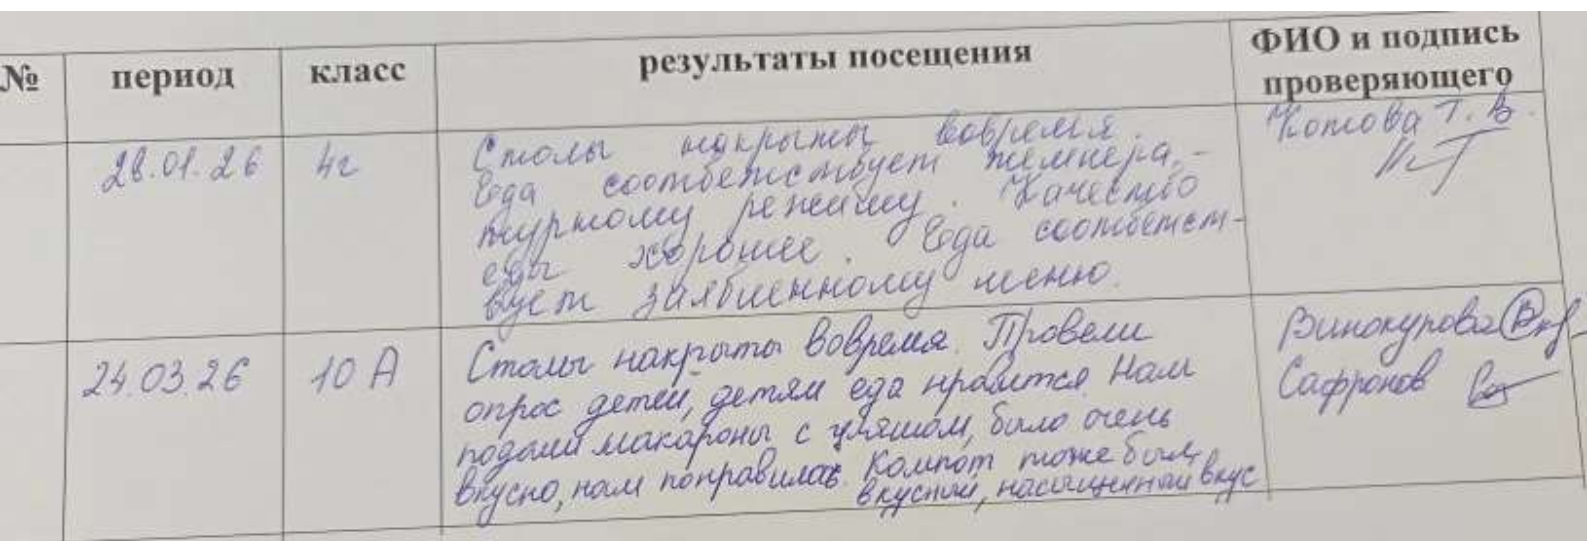 № период класс результаты посещения ФИО и подпись
проверяющего
28.01.26 4г Столы накрыты вовремя. Котова Т. В.
Еда соответствует темпера-
турному режиму. Качество
еды хорошее. Еда соответст-
вует заявленному меню.
24.03.26 10 А Столы накрыты вовремя. Провели Винокурова
опрос детей, детям еда нравится. Нам Сафронов
подали макароны с гуляшом, было очень
вкусно, нам понравилось. Компот тоже был
вкусный, насыщенный вкус